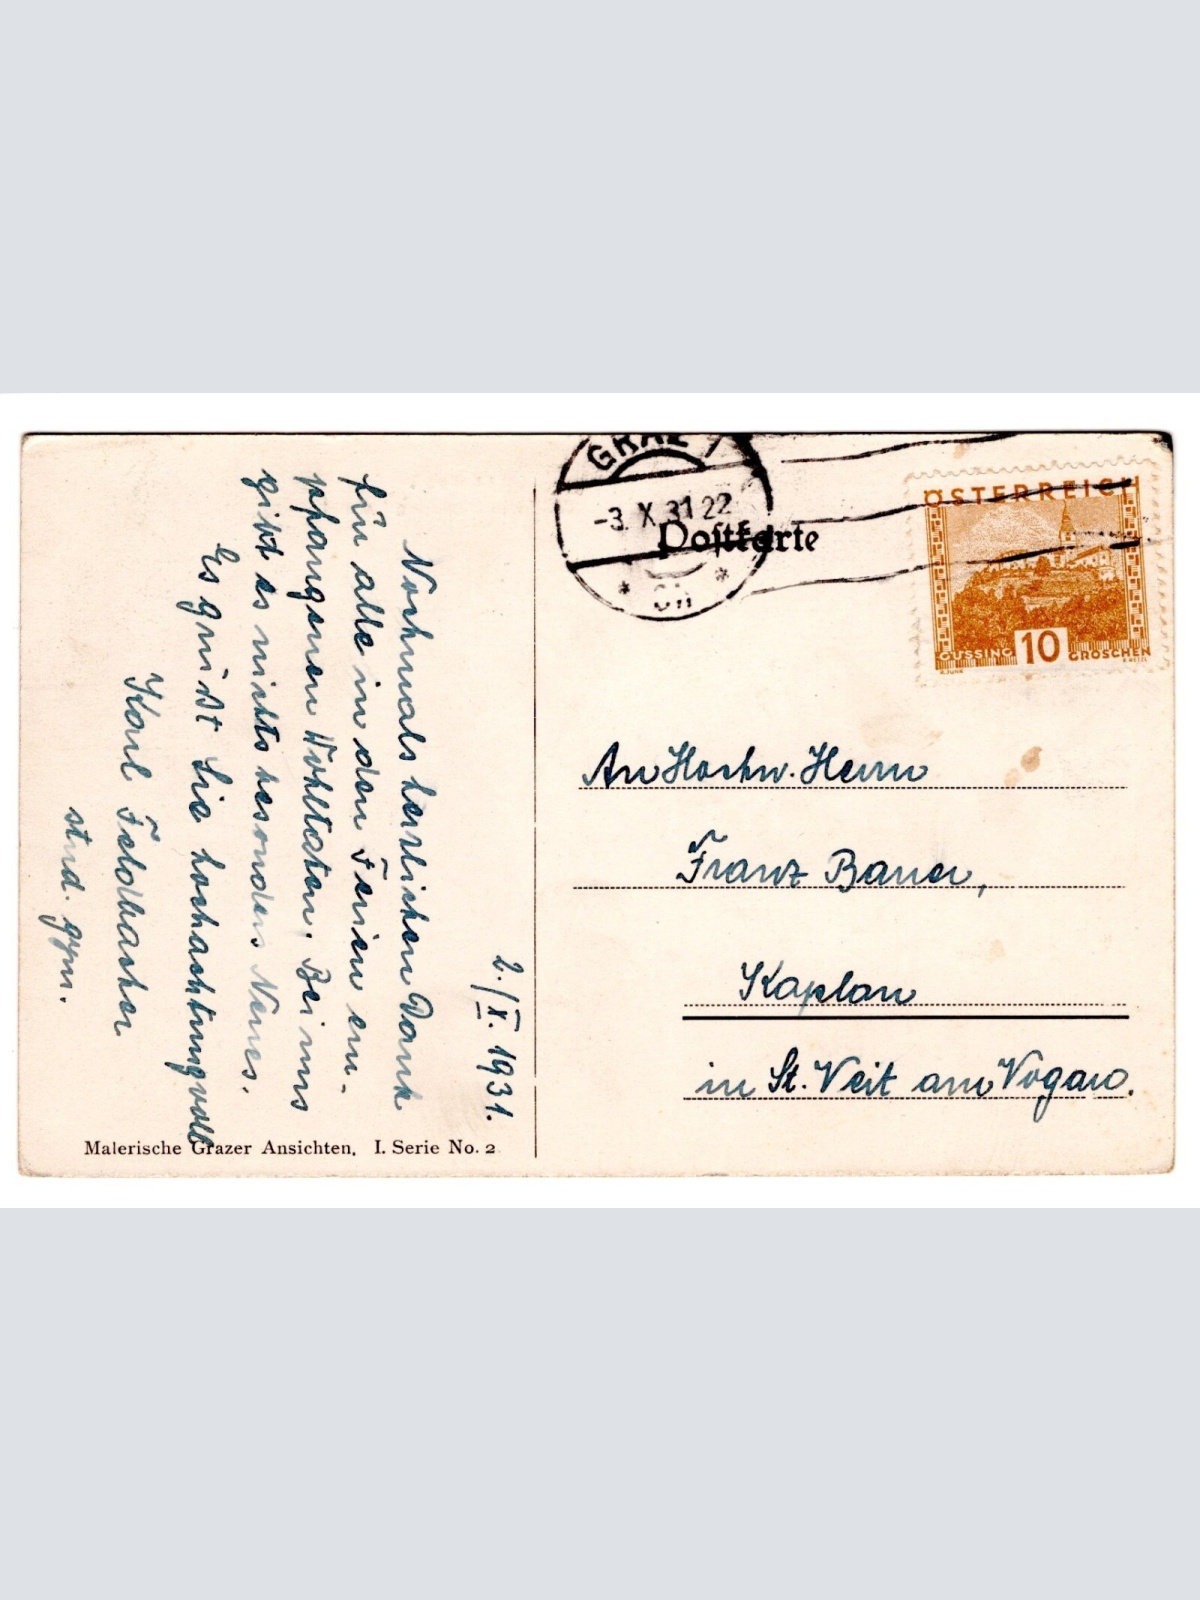 2./X. 1931.
Nochmals herzlichen Dank
für alle in den Ferien em-
pfangenen Wohltaten. Bei uns
gibt es nichts besonders Neues.
Es grüßt Sie hochachtungvoll
Karl Feldbacher
stud. gym.
Malerische Grazer Ansichten. I. Serie No. 2
GRAZ 1
-3. X. 31 22
Postkarte
ÖSTERREICH
GÜSSING 10 GROSCHEN
An Hochw. Herrn
Franz Bauer,
Kaplan
in St. Veit am Vogau.